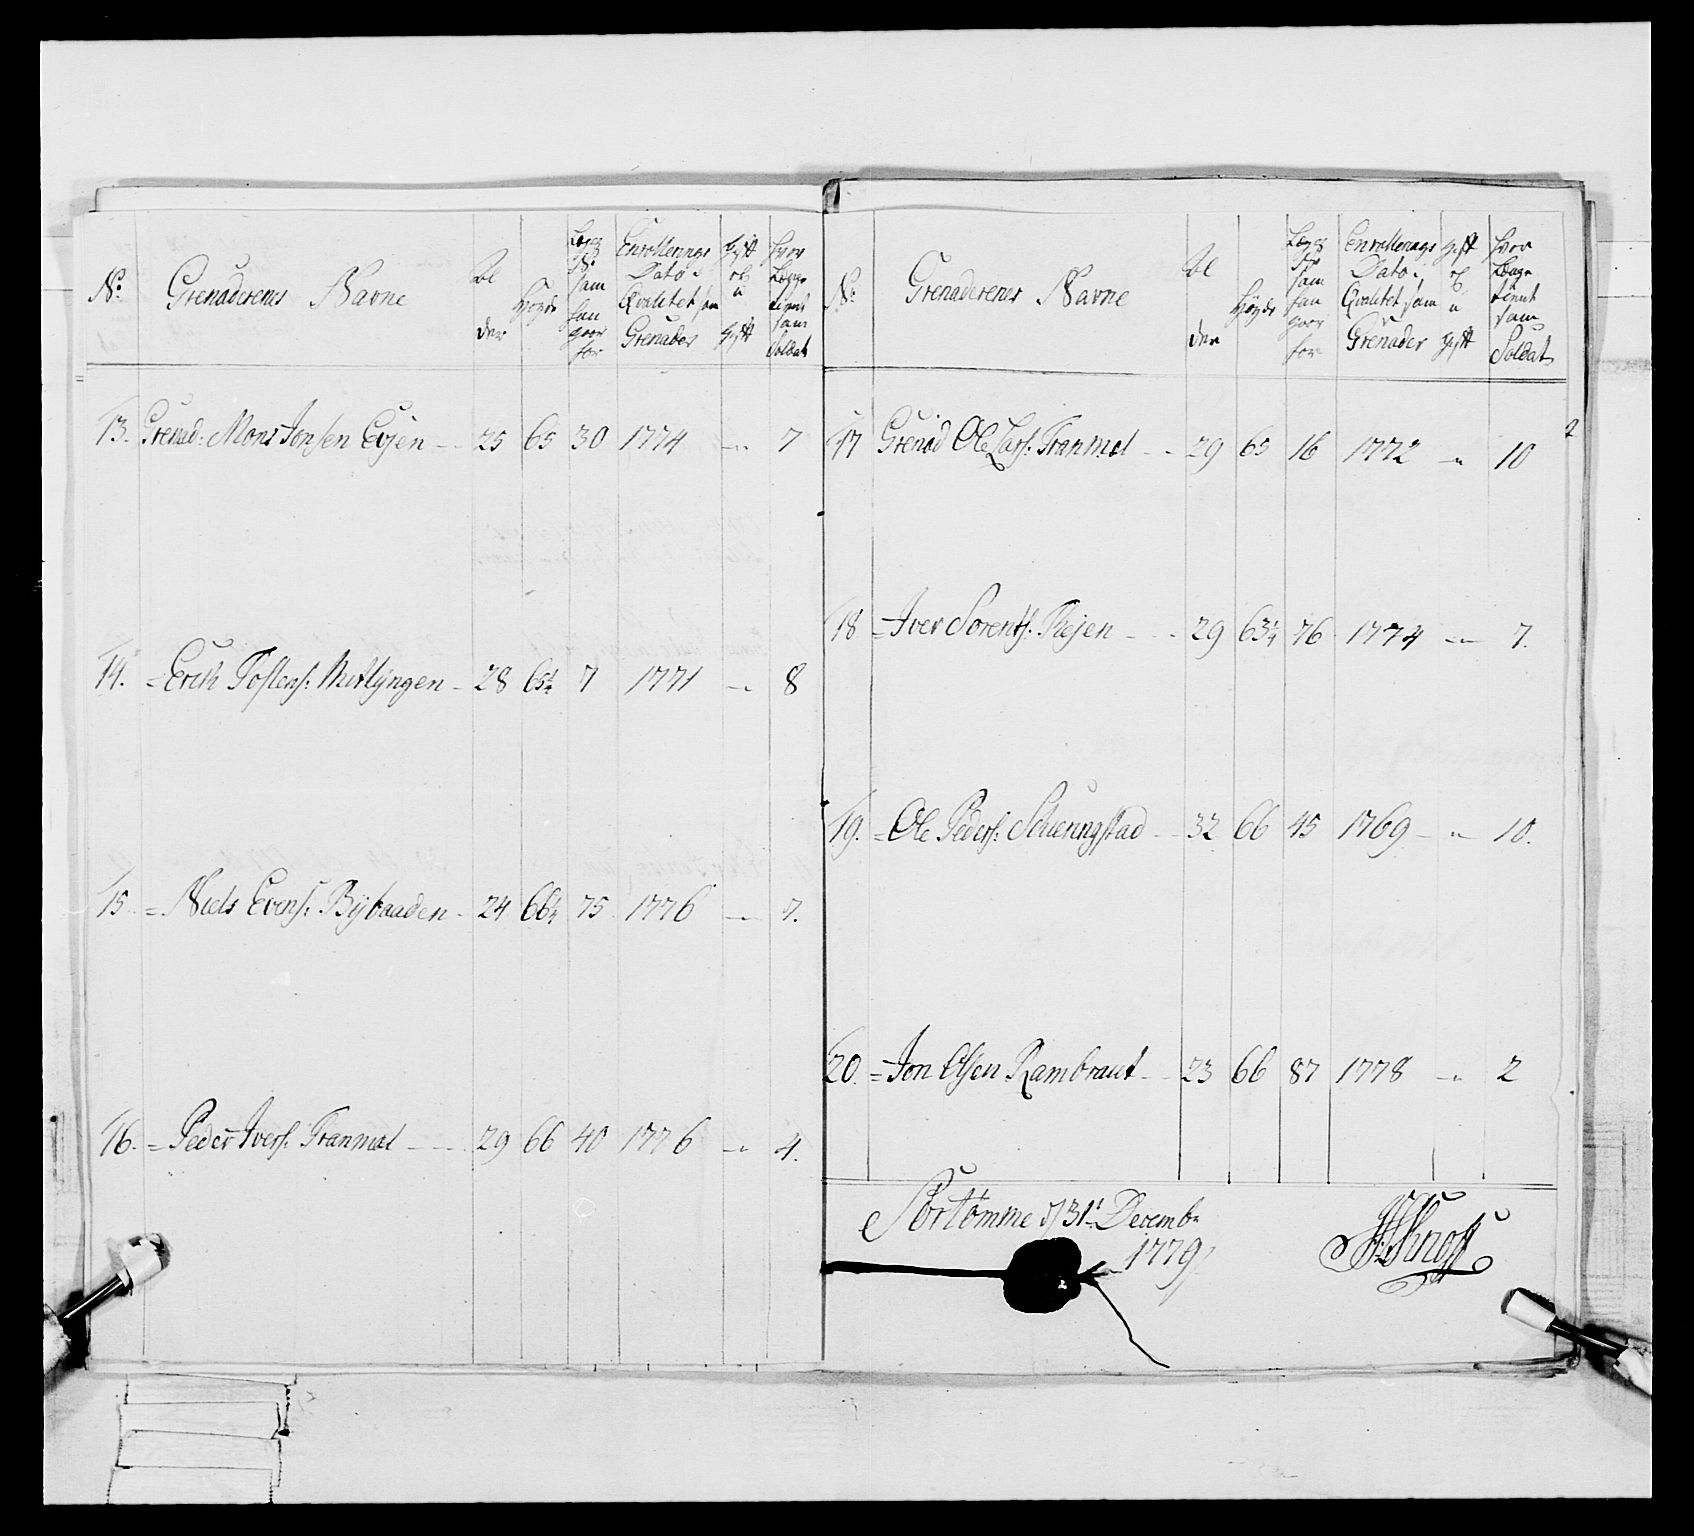 No: Grenaderenes Navne Al der Høyde Lægs No: sam han goer for Enrollerings Dato i Qvalitet sam Grenader gift og u gift hvor Længe tient sam Soldat
13. Grenad: Mons Jonsen Evjen 25 65 30 1774 " 7
14. = Erich Tostens: Mitlÿngen 28 7 1771 " 8
15 = Niels Evens: Bÿbaaden 24 66¼ 75 1776 " 7.
16. = Peder Ivers: Tranmæl 29 66 40 1776 " 4.
No: Grenaderenes Navne Al der Høyde Lægs Nr sam han goer for Enrollerings Dato i Qvalitet sam Grenader gift og u gift hvor Længe tient sam Soldat
17 Grenad Ole Lars: Tranmæl 29 65 16 1772 " 10
18 = Iver Sorents: 29 63¼ 76 1774 " 7.
19. = Ole Peders: 32 66 45 1769 " 10.
20. = Jon Olsen Rambraut 23 66 87 1778 " 2
2
Portømme d 31t Decembr
1779